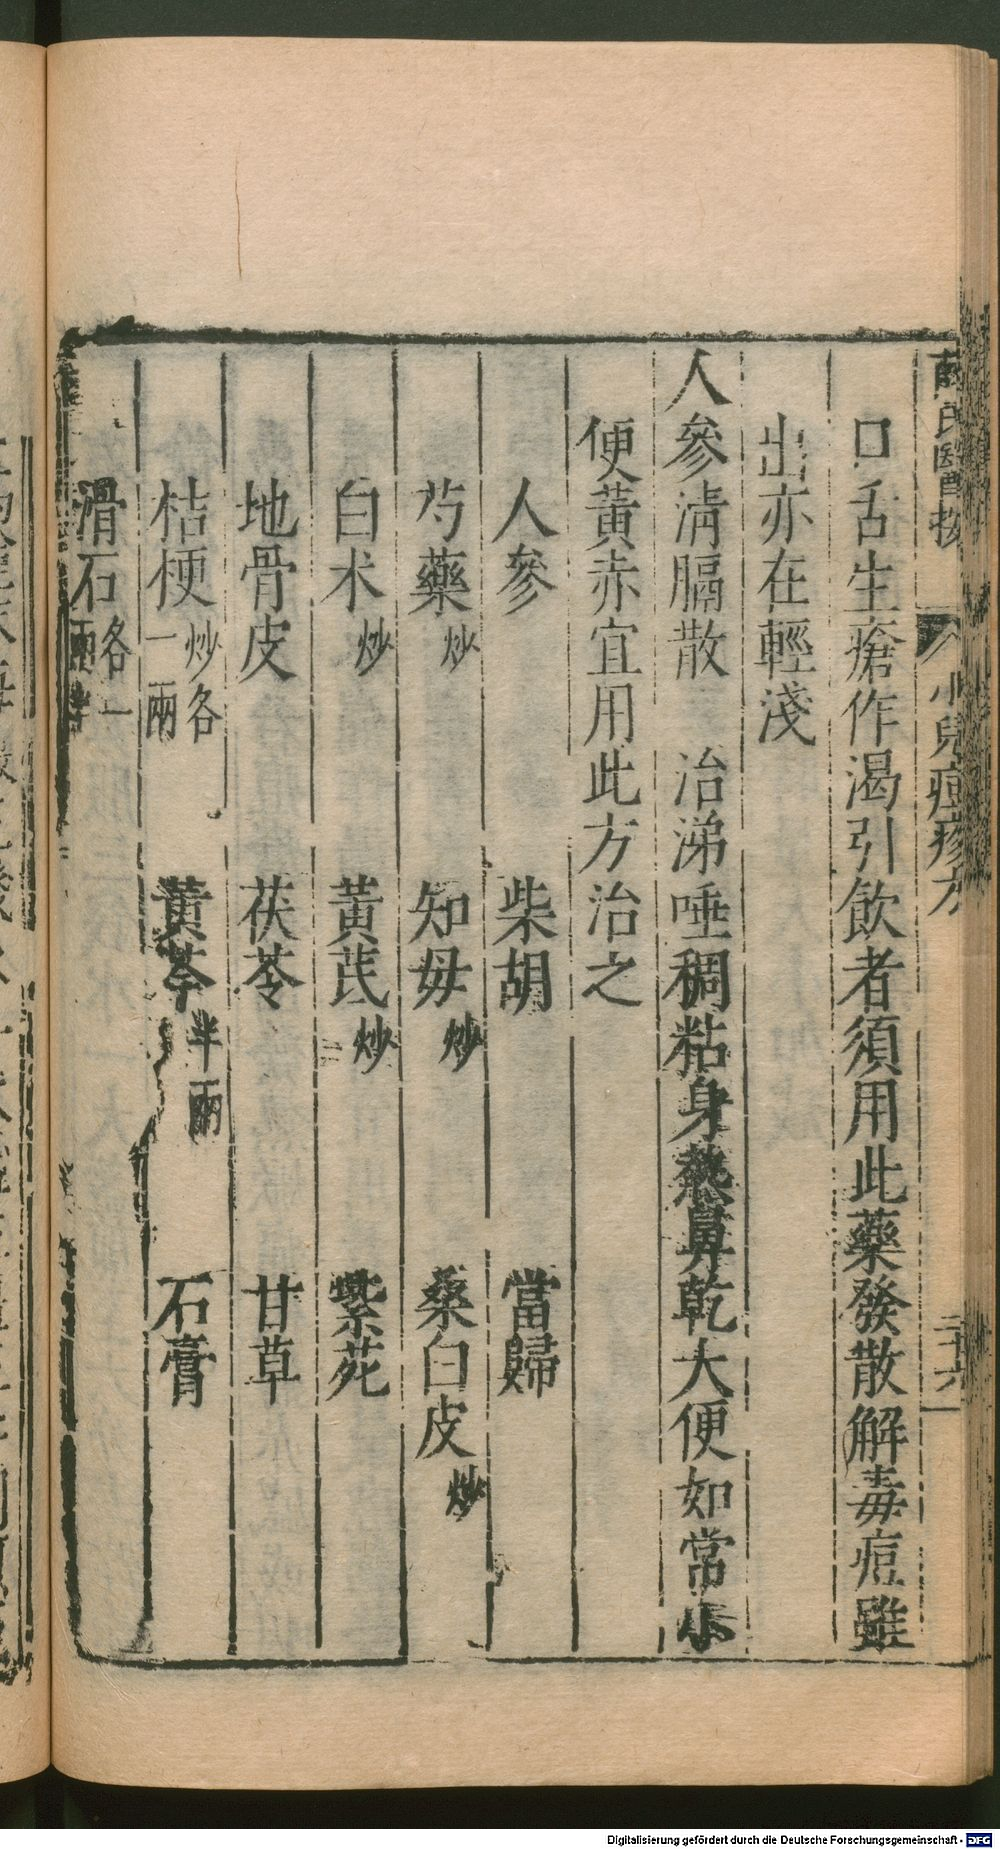 薛氏醫按 小兒痘疹方 三十六
口舌生瘡作渴引飲者須用此藥發散解毒痘雖
出亦在輕淺
人參清膈散 治涕唾稠粘身熱鼻乾大便如常小
便黃赤宜用此方治之
人參 柴胡 當歸
芍藥炒 知毋炒 桑白皮炒
白朮炒 黃芪炒 紫苑
地骨皮 茯苓 甘草
桔梗炒各一兩 黃芩半兩 石膏
滑石各一兩半
Digitalisierung gefördert durch die Deutsche Forschungsgemeinschaft - DFG